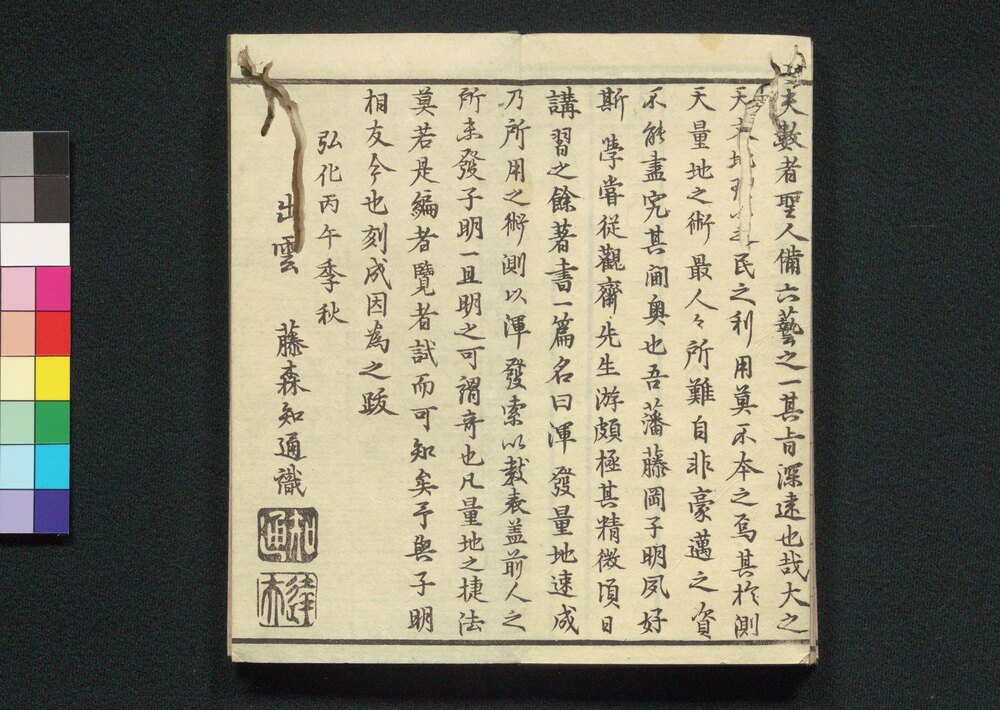 夫數者聖人備六藝之一其旨深遠也哉大之
天 地 民之利用莫不本之焉其於測
天量地之術最人々所難自非豪邁之資
不能盡究其閫奥也吾藩藤岡子明夙好
斯學嘗從觀齋先生游頗極其精微頃日
講習之餘著書一篇名曰渾發量地速成
乃所用之術測以渾發索以数表盖前人之
所未發子明一旦明之可謂奇也凡量地之捷法
莫若是編者覽者試而可知矣予與子明
相友今也刻成因為之跋
弘化丙午季秋
出雲 藤森知通識
知通